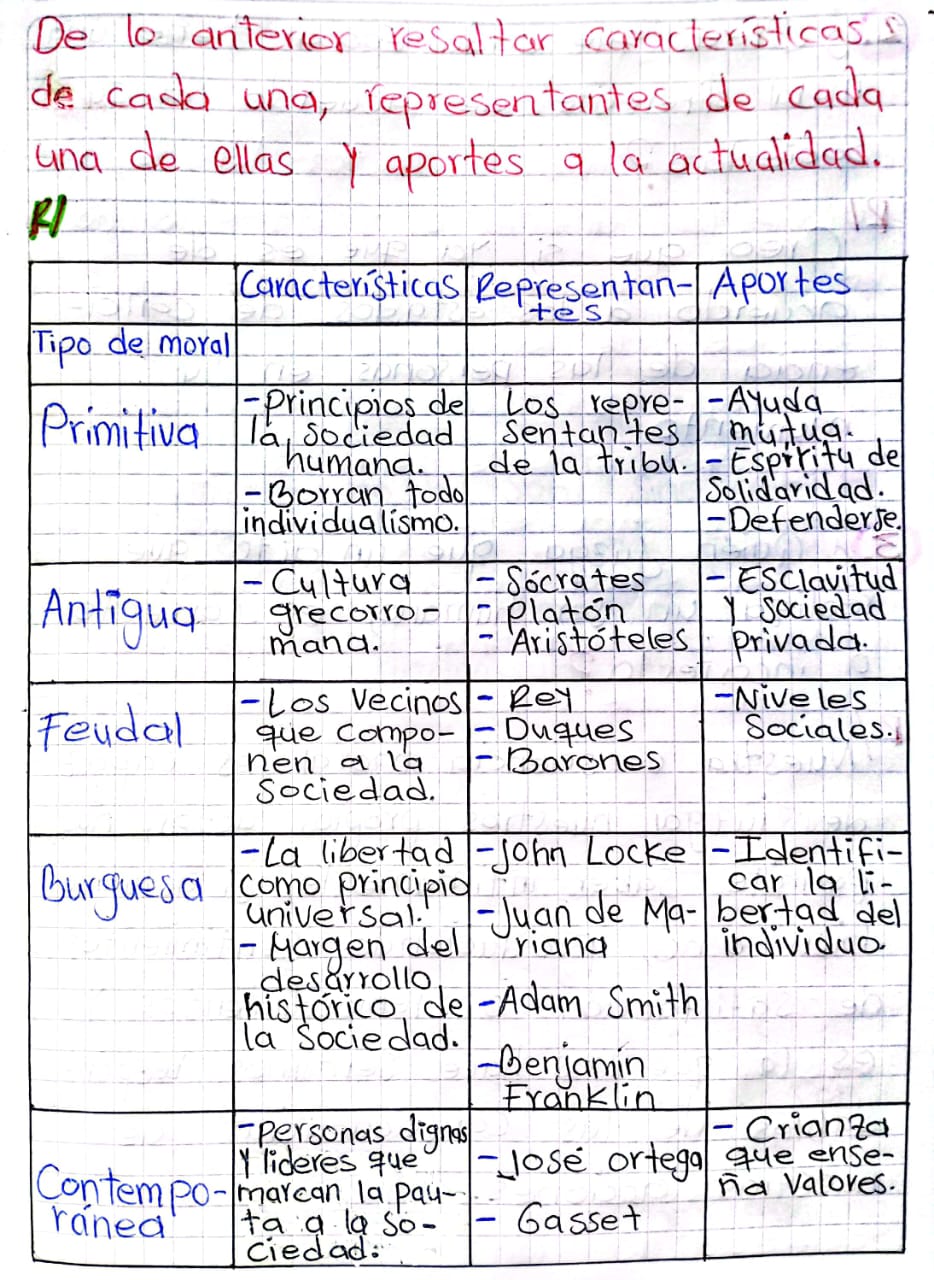 De lo anterior resaltar características
de cada una, representantes de cada
una de ellas y aportes a la actualidad.
R/
Características Representan-
tes Aportes
Tipo de moral
Primitiva
-Principios de
la sociedad
humana.
-Borran todo
individualismo.
Los repre-
sentantes
de la tribu.
-Ayuda
mutua.
-Espíritu de
Solidaridad.
-Defenderse.
Antigua
- Cultura
grecorro-
mana.
- Sócrates
- Platón
- Aristóteles
- Esclavitud
y sociedad
privada.
Feudal
-Los vecinos
que compo-
nen a la
Sociedad.
- Rey
- Duques
- Barones
-Niveles
Sociales.
Burguesa
-La libertad
como principio
universal.
- Margen del
desarrollo
histórico de
la Sociedad.
-John Locke
-Juan de Ma-
riana
-Adam Smith
-Benjamín
Franklin
-Identifi-
car la li-
bertad del
individuo.
Contempo-
ránea
-personas dignas
y lideres que
marcan la pau-
ta a la so-
ciedad.
-José ortega
- Gasset
- Crianza
que ense-
ña valores.